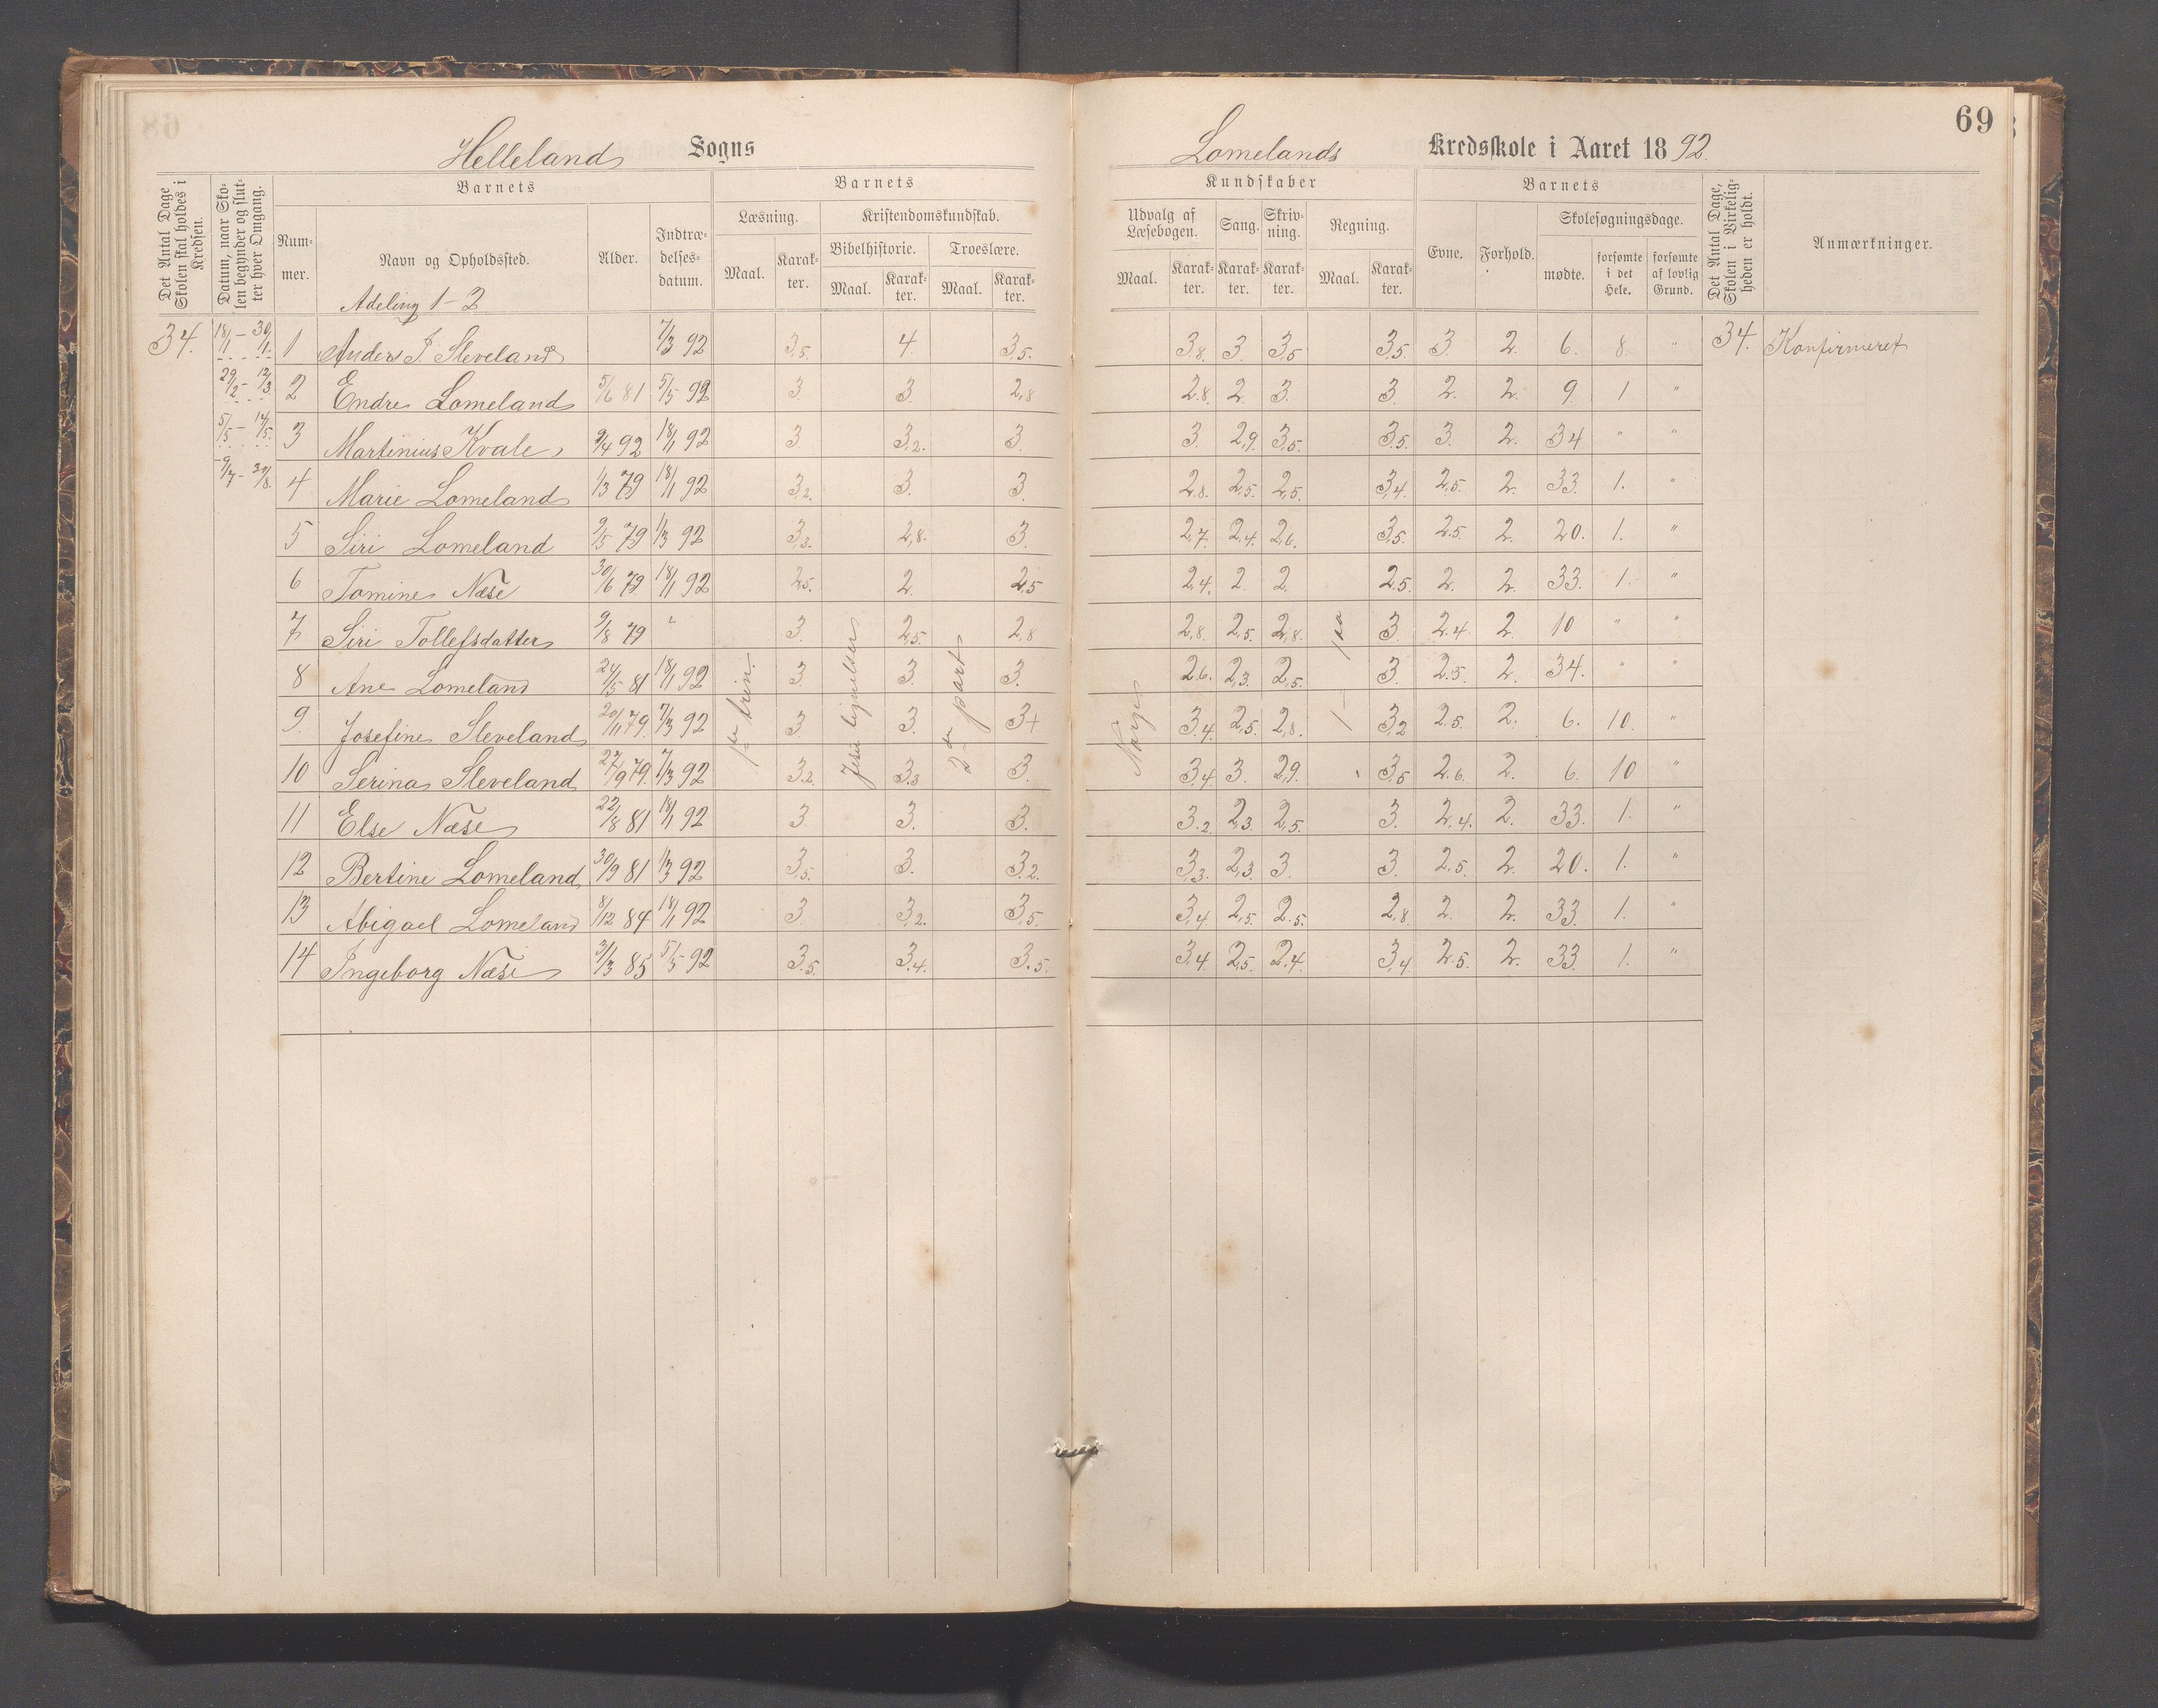 69
Helleland Sogns
Lomelands Kredsskole i Aaret 1892.
Det Antal Dage Skolen skal holdes i Kredsen.
Datum, naar Skolen begynder og slutter hver Omgang.
Barnets
Nummer.
Navn og Opholdssted.
Alder.
Indtrædelsesdatum.
Barnets
Læsning.
Maal.
Karakter.
Kristendomskundskab.
Bibelhistorie.
Maal.
Karakter.
Troeslære.
Maal.
Karakter.
Kundskaber
Udvalg af Læsebogen.
Maal.
Karakter.
Sang.
Karakter.
Skrivning.
Karakter.
Regning.
Maal.
Karakter.
Barnets
Evne.
Forhold.
Skolesøgningsdage.
mødte.
forsømte i det Hele.
forsømte af lovlig Grund.
Det Antal Dage, Skolen i Virkeligheden er holdt.
Anmærkninger.
Adeling 1-2
34. 18/1 - 30/1. 1 Anders J. Sleveland 7/3 92 3,5. 4. 3,5. 3,8. 3. 3,5 3,5. 3. 2. 6. 8. " 34. Konfirmeret
29/2 - 12/3 2 Endre Lomeland 5/6 81 5/5 92 3. 3. 2,8 2.8. 2. 3. 3. 2. 2. 9. 1 "
5/5 - 14/5. 3 Martinius Kvale 9/4 92 18/1 92 3 3,2. 3. 3. 2,9. 3,5. 3.5. 3. 2. 34 " "
4 Marie Lomeland 1/3 79 18/1 92 3,2. 3. 3. 2,8. 2,5. 2,5. 3,4. 2,5. 2. 33. 1. "
5 Siri Lomeland 9/5 79 1/3 92 3,3. 2,8. 3. 2,7. 2,4. 2,6. 3,5. 2.5. 2. 20. 1. "
6 Tomine Næse 30/6 79 18/1 92 2,5. 2. 2,5 2,4. 2. 2. 2.5. 2. 2. 33. 1. "
7 Siri Tollefsdatter 9/8 79 " 3. 2,5. 2,8 2,8. 2,5. 2,8. 3. 2.4. 2. 10 " "
8 Ane Lomeland 24/5 81 18/1 92 3. 3. 3. 2.6. 2,3. 2,5. 3. 2.5. 2. 34. " "
9. Josefine Sleveland 20/11 79. 7/3 92 3. 3. 3+ 3,4. 2,5. 2,8. 3,2 2.5. 2. 6. 10. "
10 Serina Sleveland 27/9 79. 7/3 92 3.2. 3.3 3. 3,4 3. 2,9. 3,5 2.6. 2. 6. 10 "
11 Else Næse 22/8 81 18/1 92 3. 3. 3. 3.2. 2,3. 2,5. 3. 2.4. 2. 33. 1. "
12 Bertine Lomeland 30/9 81 1/3 92 3,5. 3. 3.2. 3,3. 2,3. 3. 3. 2,5. 2. 20. 1. "
13 Abigael Lomeland 8/12 84 18/1 92 3. 3,2. 3,5. 3,4. 2,5. 2.5. 2,8. 2. 2. 33. 1. "
14 Ingeborg Næse 3/3 85 5/5 92 3.5. 3.4. 3.5. 3.4. 2,5. 2.4. 3,4. 2.5. 2. 33. 1. "
1ste trin.
Jesu lignelser
2den part
Norge